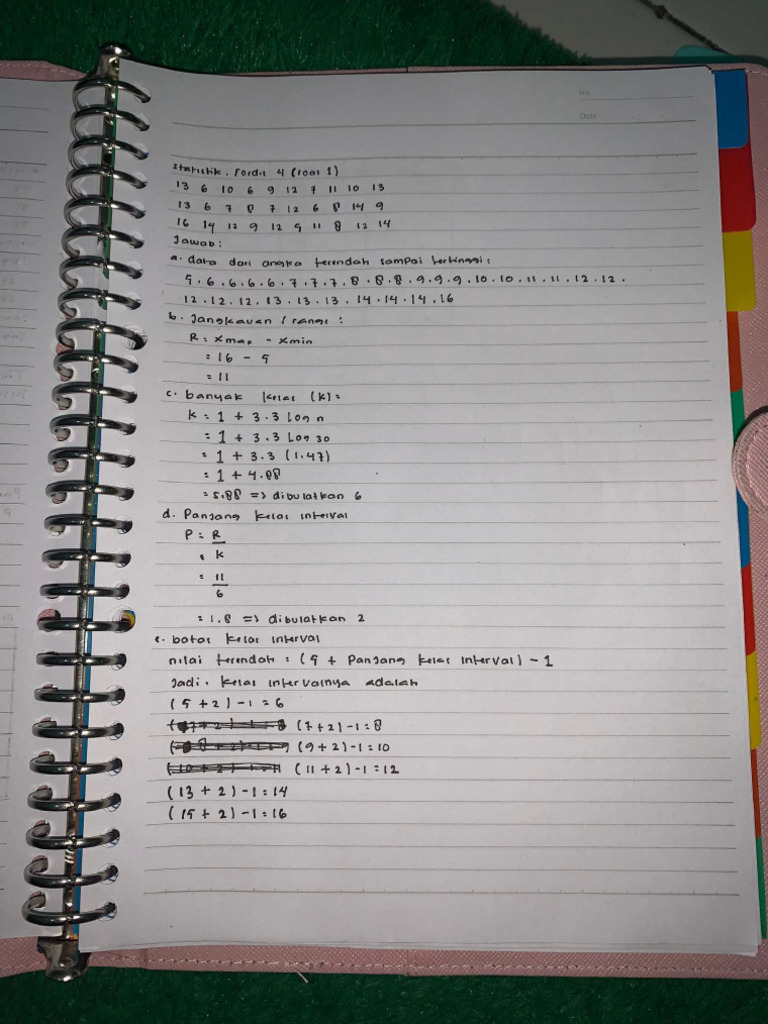 No.
Date
Statistik, Fordis 4 (soal 1)
13 6 10 6 9 12 7 11 10 13
13 6 7 8 7 12 6 8 14 9
16 14 12 9 12 5 11 8 12 14
Jawab:
a. data dari angka terendah sampai tertinggi:
5, 6, 6, 6, 6, 7, 7, 7, 8, 8, 8, 9, 9, 9, 10, 10, 11, 11, 12, 12,
12, 12, 12, 13, 13, 13, 14, 14, 14, 16
b. Jangkauan / range :
R = xmax - xmin
= 16 - 5
= 11
c. banyak kelas (k)=
k = 1 + 3.3 log n
= 1 + 3.3 log 30
= 1 + 3.3 (1.47)
= 1 + 4.88
= 5.88 => dibulatkan 6
d. Panjang kelas interval
P = R
k
= 11
6
= 1.8 => dibulatkan 2
e. batas kelas interval
nilai terendah = (5 + Panjang kelas interval) - 1
Jadi, kelas intervalnya adalah
(5 + 2) - 1 = 6
(7 + 2) - 1 = 8
(9 + 2) - 1 = 10
(11 + 2) - 1 = 12
(13 + 2) - 1 = 14
(15 + 2) - 1 = 16